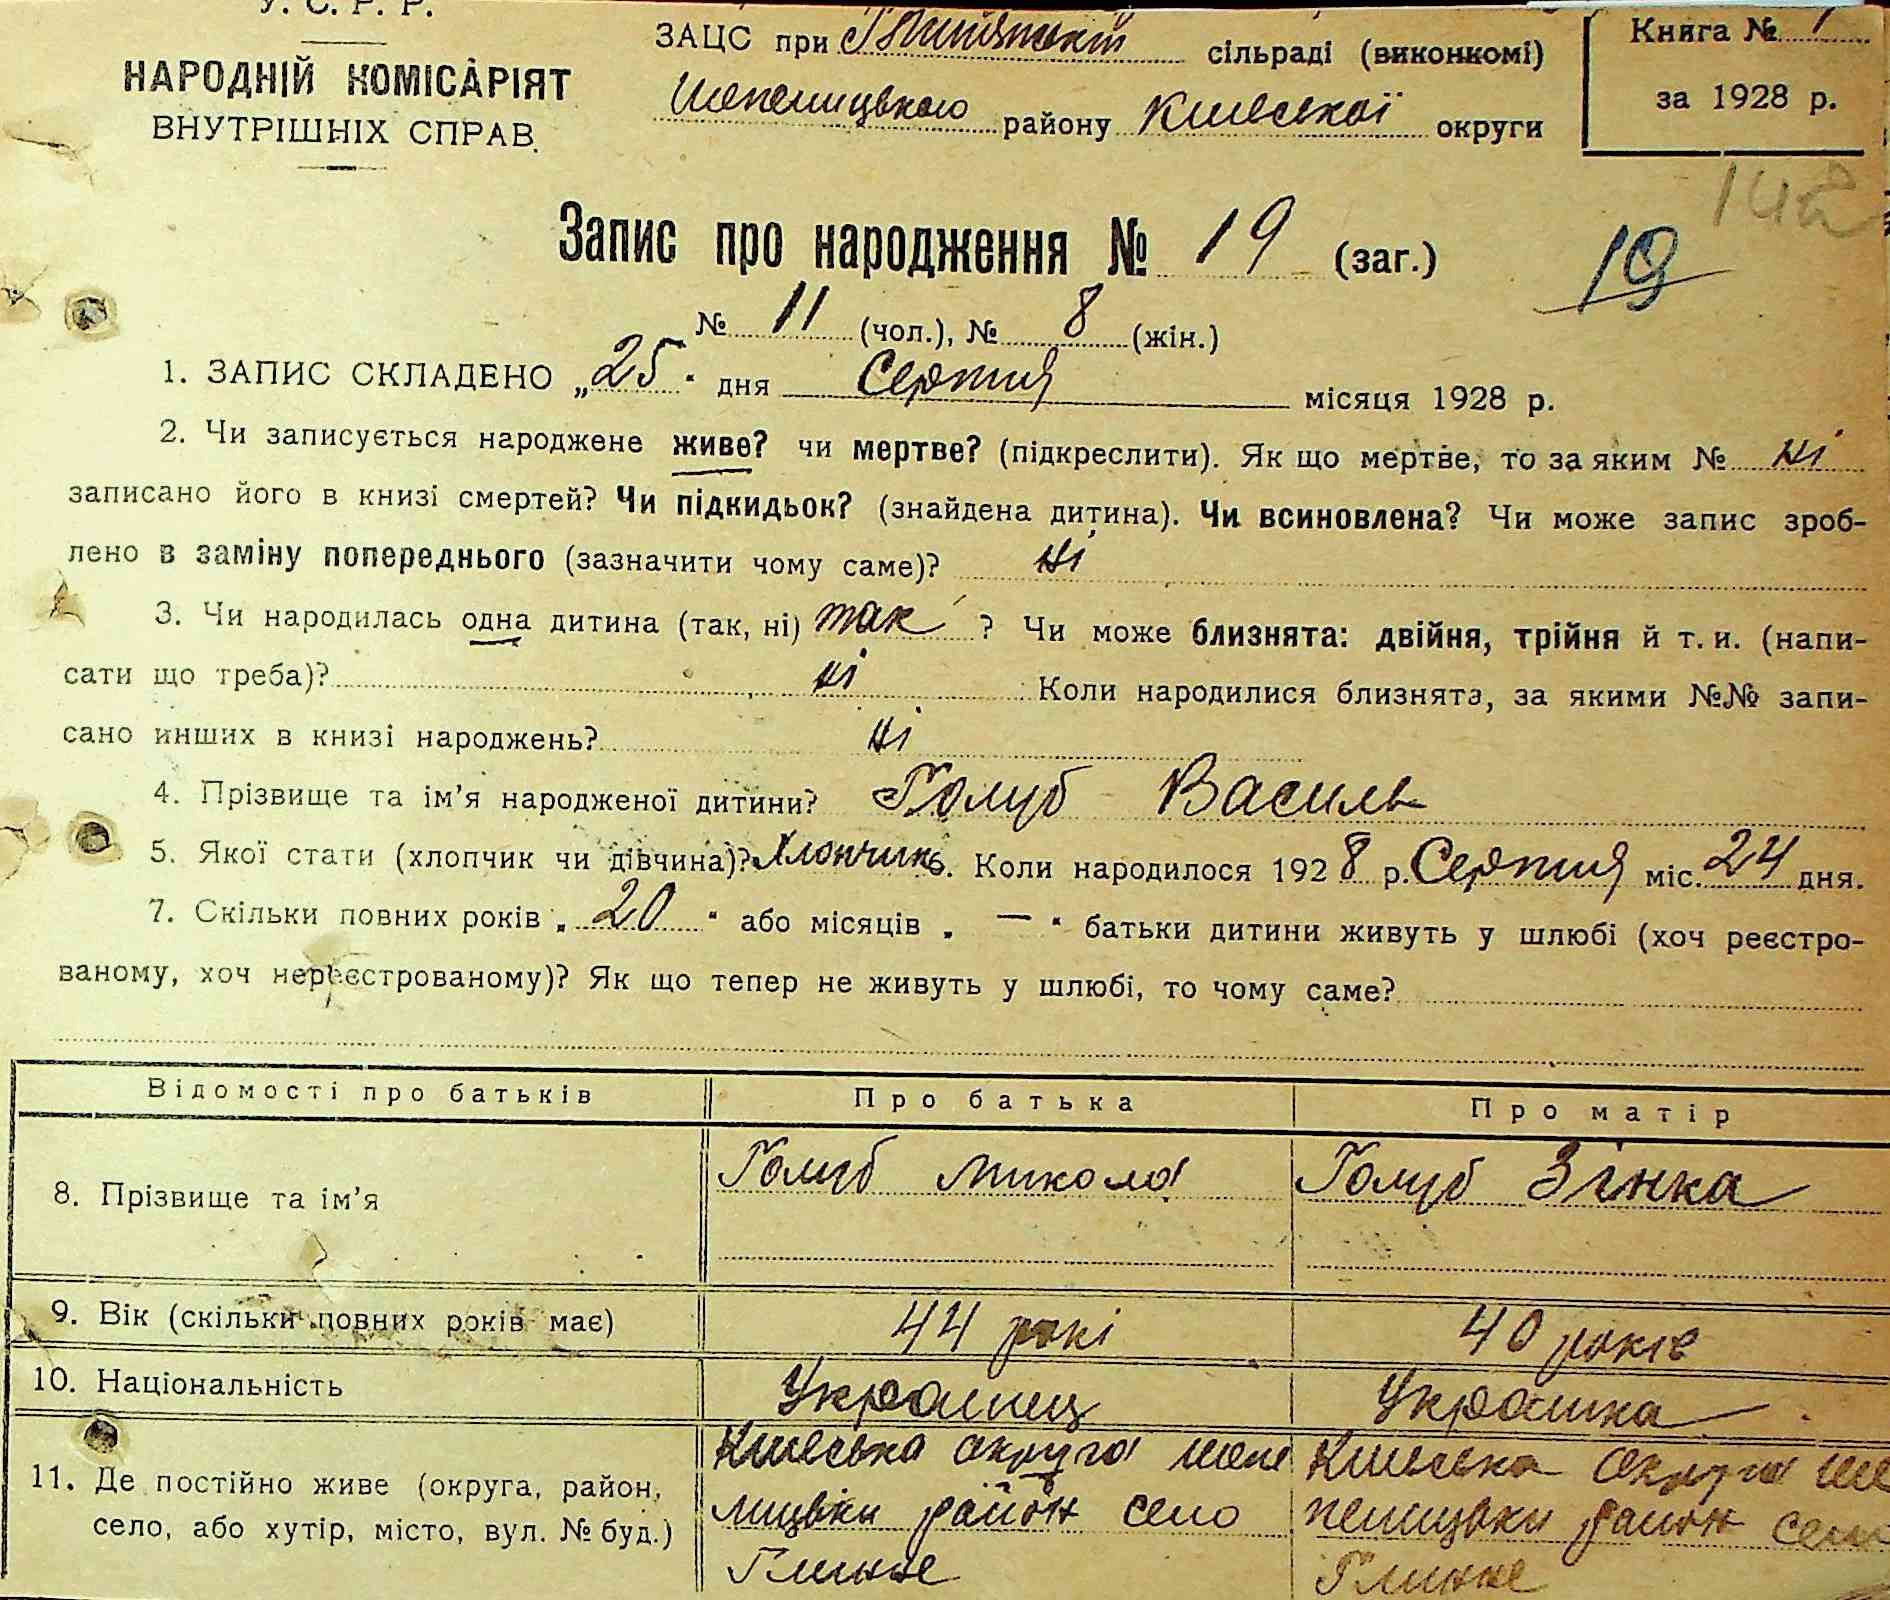 У. С. Р. Р.
НАРОДНІЙ КОМІСАРІЯТ
ВНУТРІШНІХ СПРАВ.
ЗАЦС при сільраді (виконкомі)
Шепелицького району Київської округи
Книга № 1
за 1928 р.
142
Запис про народження № 19 (заг.)
19
№ 11 (чол.), № 8 (жін.)
1. ЗАПИС СКЛАДЕНО „25“ дня Серпня місяця 1928 р.
2. Чи записується народжене живе? чи мертве? (підкреслити). Як що мертве, то за яким № ні
записано його в книзі смертей? Чи підкидьок? (знайдена дитина). Чи всиновлена? Чи може запис зроб-
лено в заміну попереднього (зазначити чому саме)? ні
3. Чи народилась одна дитина (так, ні) так ? Чи може близнята: двійня, трійня й т. и. (напи-
сати що треба)? ні Коли народилися близнята, за якими №№ запи-
сано инших в книзі народжень? ні
4. Прізвище та ім'я народженої дитини? Голуб Василь
5. Якої стати (хлопчик чи дівчина)? Хлопчик 6. Коли народилося 1928 р. Серпня міс. 24 дня.
7. Скільки повних років „20“ або місяців „—“ батьки дитини живуть у шлюбі (хоч реєстро-
ваному, хоч нереєстрованому)? Як що тепер не живуть у шлюбі, то чому саме?
Відомості про батьків Про батька Про матір
8. Прізвище та ім'я Голуб Микола Голуб Зінка
9. Вік (скільки повних років має) 44 рокі 40 років
10. Національність Українец Українка
11. Де постійно живе (округа, район,
село, або хутір, місто, вул. № буд.)
Київська округа шепе
лицьки район село
Глинне
Київська округа ше
пелицьки район село
Глинне